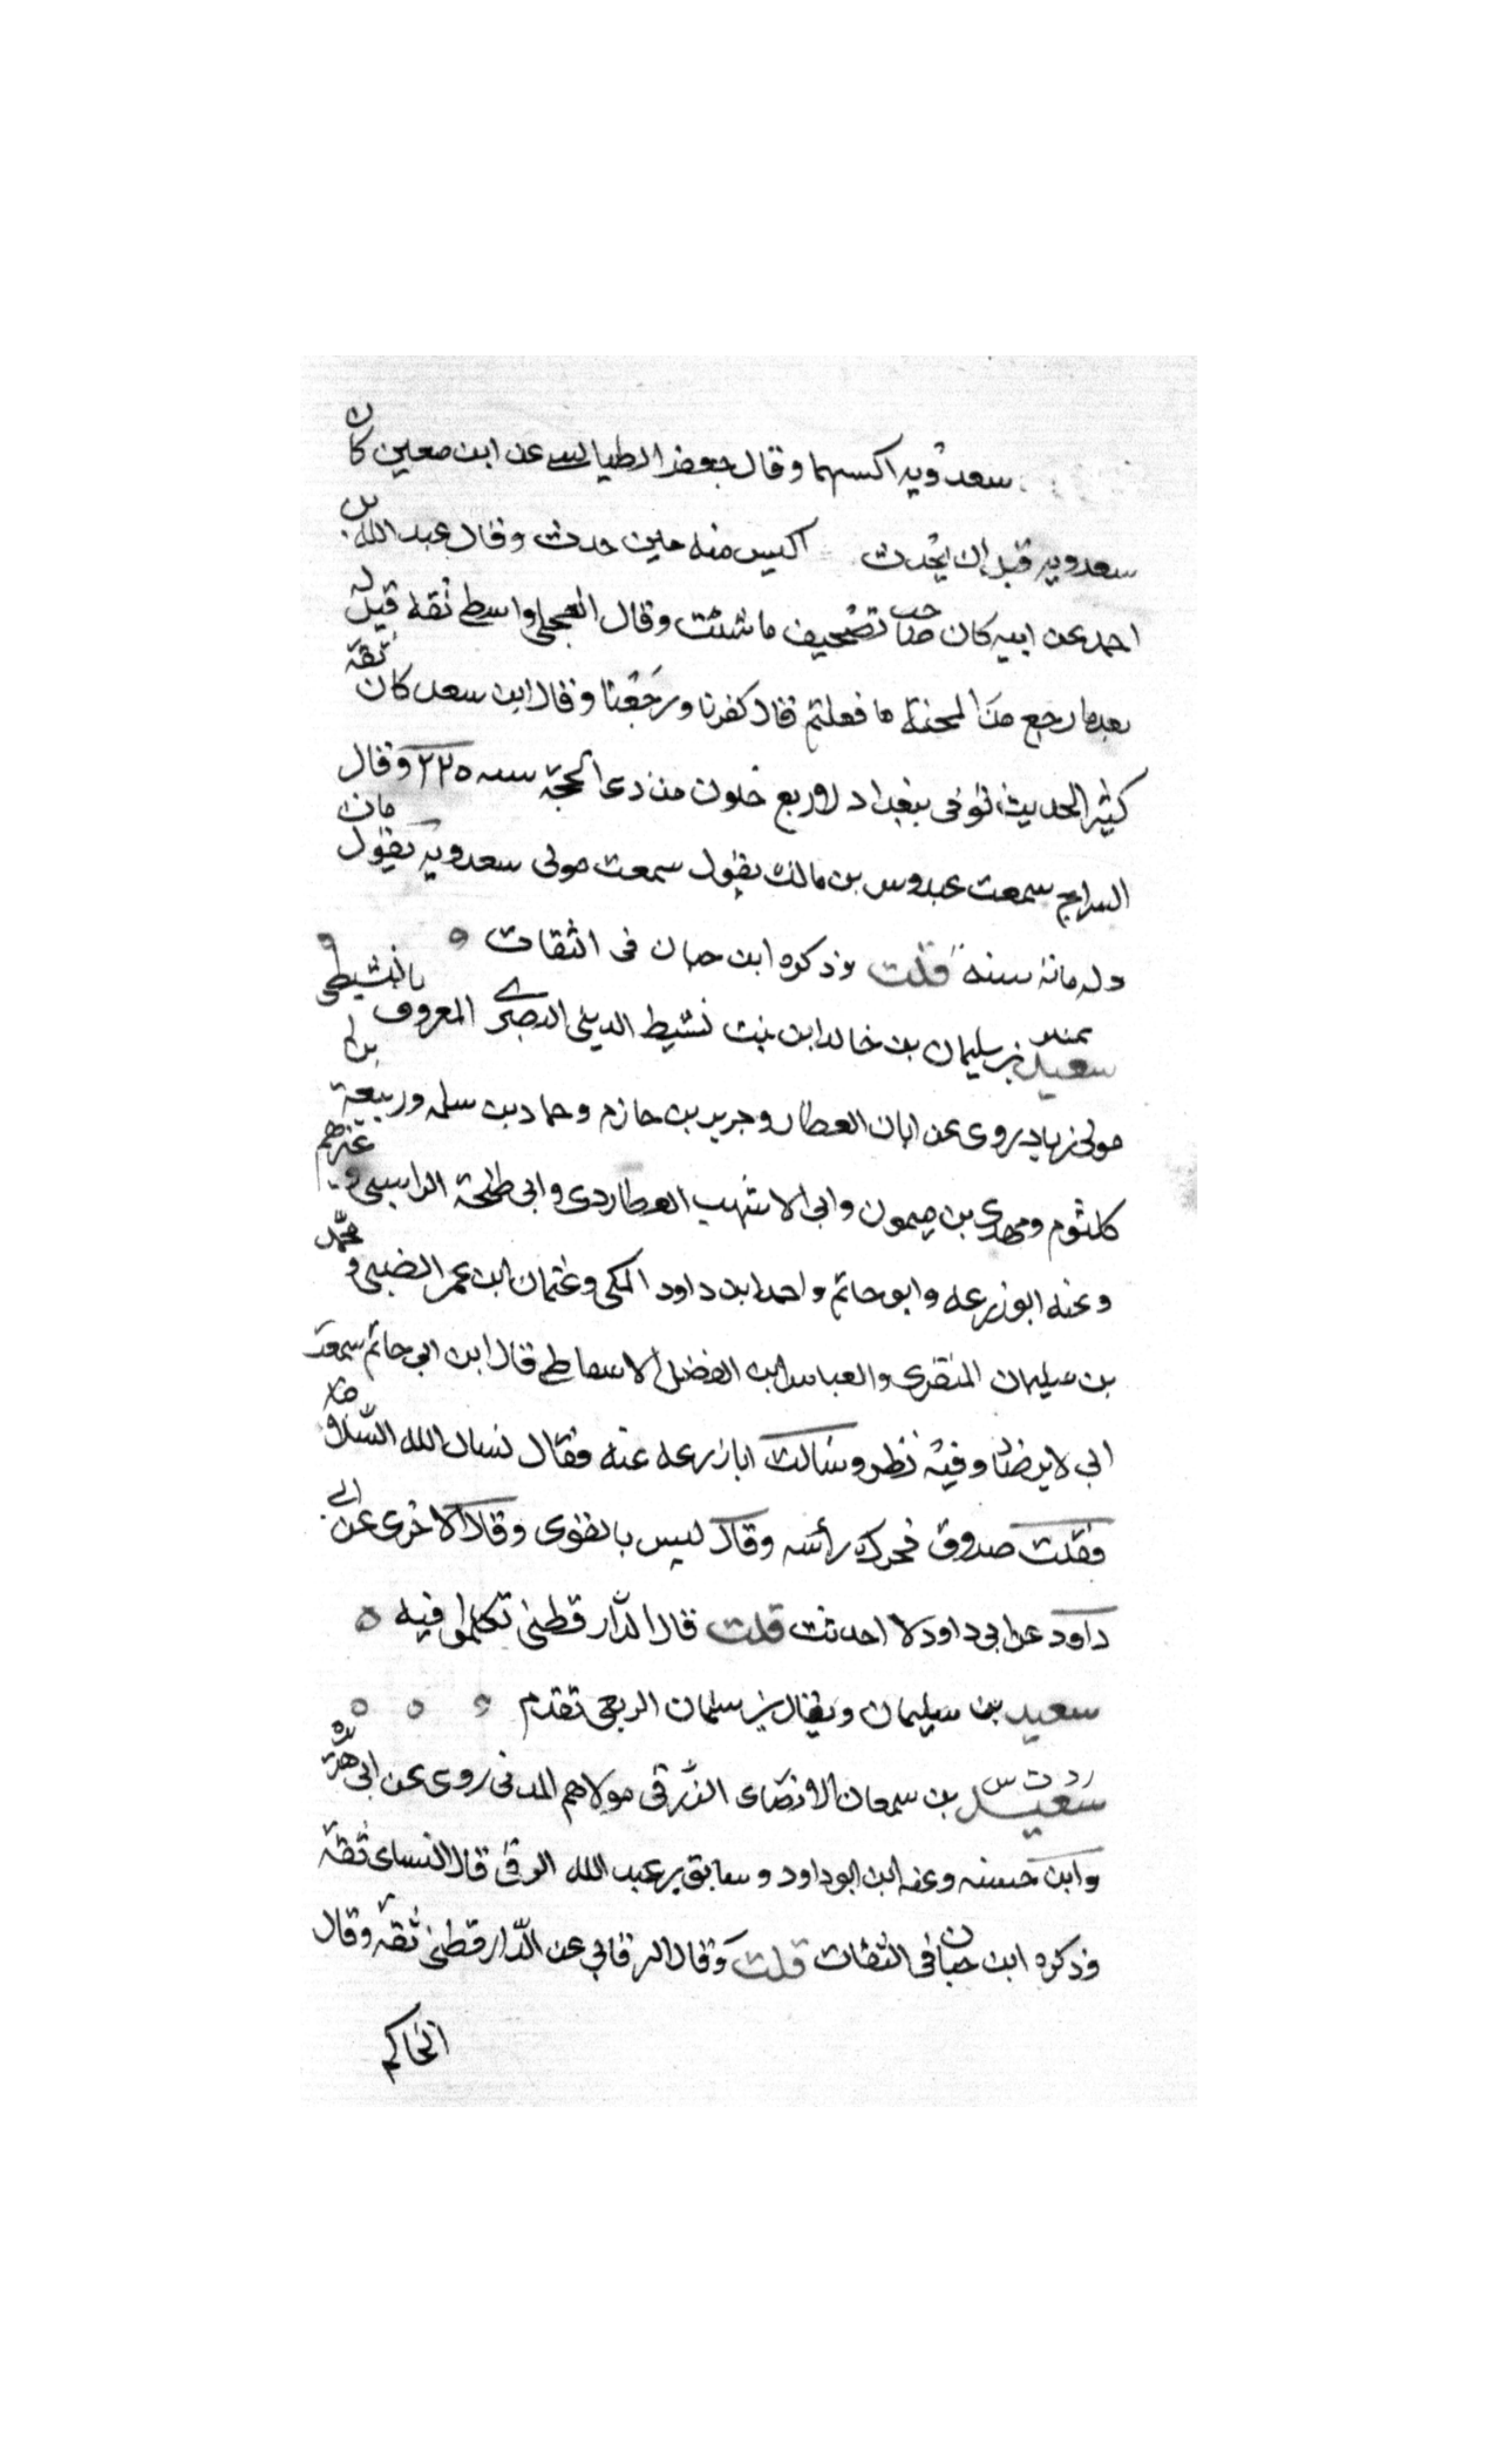 سعدويه اكيسهما وقال جعفر الطيالسي عن ابن معين كان
سعدويه قبل ان يحدث اكيس منه حين حدث وقال عبد الله بن
احمد عن ابيه كان صاحب تصحيف ما شئت وقال العجلي واسطي ثقة قيل له
بعد ما رجع من المحنة ما فعلتم قال كفرنا ورجعنا وقال ابن سعد كان ثقة
كثير الحديث توفى ببغداد لاربع خلون من ذى الحجة سنه ٢٢٥ وقال
السراج سمعت عبدوس بن مالك يقول سمعت مولى سعدويه يقول مات
وله مائة سنه قلت وذكره ابن حبان فى الثقات
تمييز سعيد بن سليمان بن خالد ابن بنت نشيط الديلى البصرى المعروف بالنشيطى
مولى زياد روى عن ابان العطار وجرير بن حازم وحماد بن سلمه وربيعة بن
كلثوم ومهدى بن ميمون وابى الاشهب العطاردى وابى طلحة الراسبى وغيرهم
وعنه ابو زرعه وابو حاتم واحمد ابن داود المكى وعثمان ابن عمر الضبى ومحمد
بن سليمان المنقرى والعباس ابن الفضل الاسفاطي قال ابن ابى حاتم سمعت
ابى لا يرضاه وفيه نظر وسالت ابا زرعه عنه فقال نسال الله السلامة
فقلت صدوق فحرك رأسه وقال ليس بالقوى وقال الآخرى عن ابى
داود عن ابى داود لا احدث قلت قال الدار قطنى تكلموا فيه
سعيد بن سليمان ويقال بن سلمان الربعى تقدم
ر د ت س سعيد بن سمعان الانصاى الزرقى مولاهم المدنى روى عن ابى هريرة
وابن حسنه وعنه ابن ابو داود وسابق بن عبد الله الرقى قال النساى ثقة
وذكره ابن حبان فى الثقات قلت وقال البرقانى عن الدار قطنى ثقة وقال
الحاكم